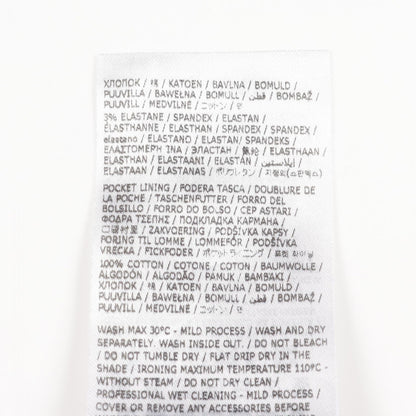 ХЛОПОК / 棉 / KATOEN / BAVLNA / BOMULD /
PUUVILLA / BAWEŁNA / BOMULL / قطن / BOMBAŽ /
PUUVILL / MEDVILNĖ / コットン / 면
3% ELASTANE / SPANDEX / ELASTAN /
ÉLASTHANNE / ELASTHAN / SPANDEX / SPANDEX /
elastano / ELASTANO / ELASTAN/ SPANDEKS /
ΕΛΑΣΤΟΜΕΡΗ ΊΝΑ / ЭЛАСТАН / / ELASTHAAN /
ELASTHAN / ELASTAANI / ELASTAN / إيلاستين /
ELASTAAN / ELASTANAS / ポリウレタン /
POCKET LINING / FODERA TASCA / DOUBLURE DE
LA POCHE / TASCHENFUTTER / FORRO DEL
BOLSILLO / FORRO DO BOLSO / CEP ASTARI /
ΦΟΔΡΑ ΤΣΕΠΗΣ / ПОДКЛАДКА КАРМАНА /
口袋衬里 / ZAKVOERING / PODŠÍVKA KAPSY /
FORING TIL LOMME / LOMMEFÔR / PODŠÍVKA
VRECKA / FICKFODER / ポケットライニング /
100% COTTON / COTONE / COTON / BAUMWOLLE /
ALGODÓN / ALGODÃO / PAMUK / BAMBAKI /
ХЛОПОК / 棉 / KATOEN / BAVLNA / BOMULD /
PUUVILLA / BAWEŁNA / BOMULL / قطن / BOMBAŽ /
PUUVILL / MEDVILNĖ / コットン / 면
WASH MAX 30°C - MILD PROCESS / WASH AND DRY
SEPARATELY. WASH INSIDE OUT. / DO NOT BLEACH
/ DO NOT TUMBLE DRY / FLAT DRIP DRY IN THE
SHADE / IRONING MAXIMUM TEMPERATURE 110°C -
WITHOUT STEAM / DO NOT DRY CLEAN /
PROFESSIONAL WET CLEANING - MILD PROCESS /
COVER OR REMOVE ANY ACCESSORIES BEFORE